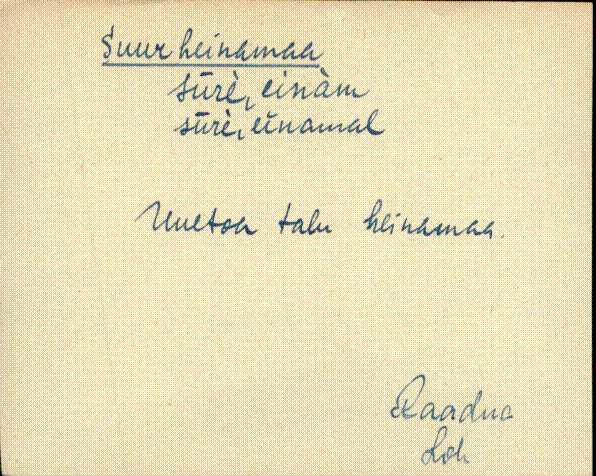 Suur heinamaa
sūrè, einàm
sūrè, einamal
Uuetoa talu heinamaa.
Raadna